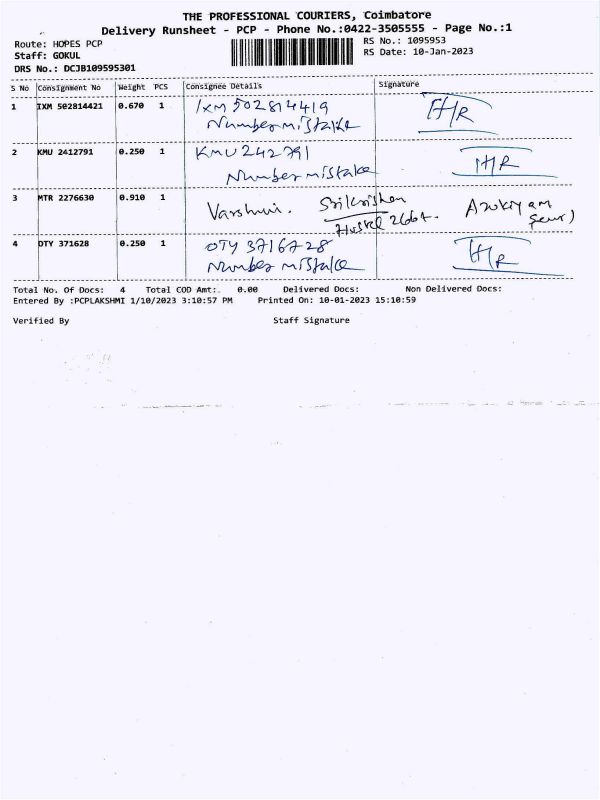 THE PROFESSIONAL COURIERS, Coimbatore
Delivery Runsheet - PCP - Phone No.:0422-3505555 - Page No.:1
Route: HOPES PCP
Staff: GOKUL
DRS No.: DCJB109595301
RS No.: 1095953
RS Date: 10-Jan-2023
S No Consignment No Weight PCS Consignee Details Signature
1 IXM 502814421 0.670 1 IXM 502814419
Number mistake H/R
2 KMU 2412791 0.250 1 KMU 242791
Number mistake H/R
3 MTR 2276630 0.910 1 Varshini. Srikrishna
4 OTY 371628 0.250 1 OTY 3716728
Number mistake H/R
Total No. Of Docs: 4 Total COD Amt:. 0.00 Delivered Docs: Non Delivered Docs:
Entered By :PCPLAKSHMI 1/10/2023 3:10:57 PM Printed On: 10-01-2023 15:10:59
Verified By Staff Signature